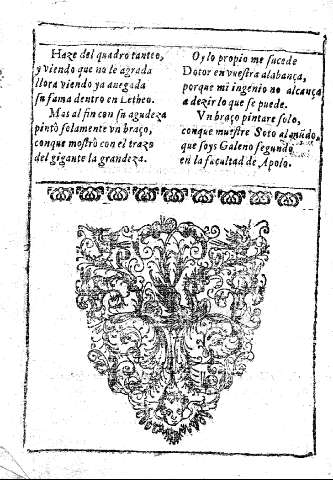 Haze del quadro tanteo,
y viendo que no le agrada
llora viendo ya anegada
su fama dentro en Letheo.
Mas al fin con su agudeza
pintò solamente vn braço,
conque mostrò con el trazo
del gigante la grandeza.
Oy lo propio me sucede
Dotor en vuestra alabança,
porque mi ingenio no alcança
a dezir lo que se puede.
Vn braço pintare solo,
conque muestre Soto al mũdo,
que soys Galeno segundo
en la facultad de Apolo.